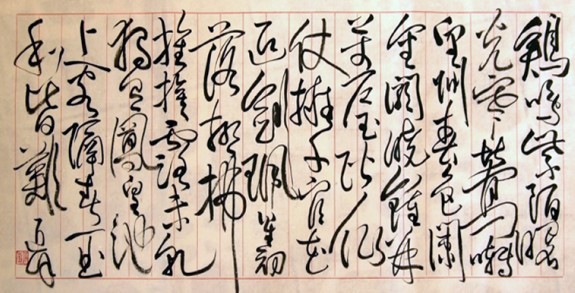 鷄鳴紫陌曙
光寒鶯囀
皇州春色闌
金闕曉鐘開
萬户玉階仙
仗擁千官花
迎劍珮星初
落柳拂
旌旗露未乾
獨有鳳皇池
上客陽春一曲
和皆難